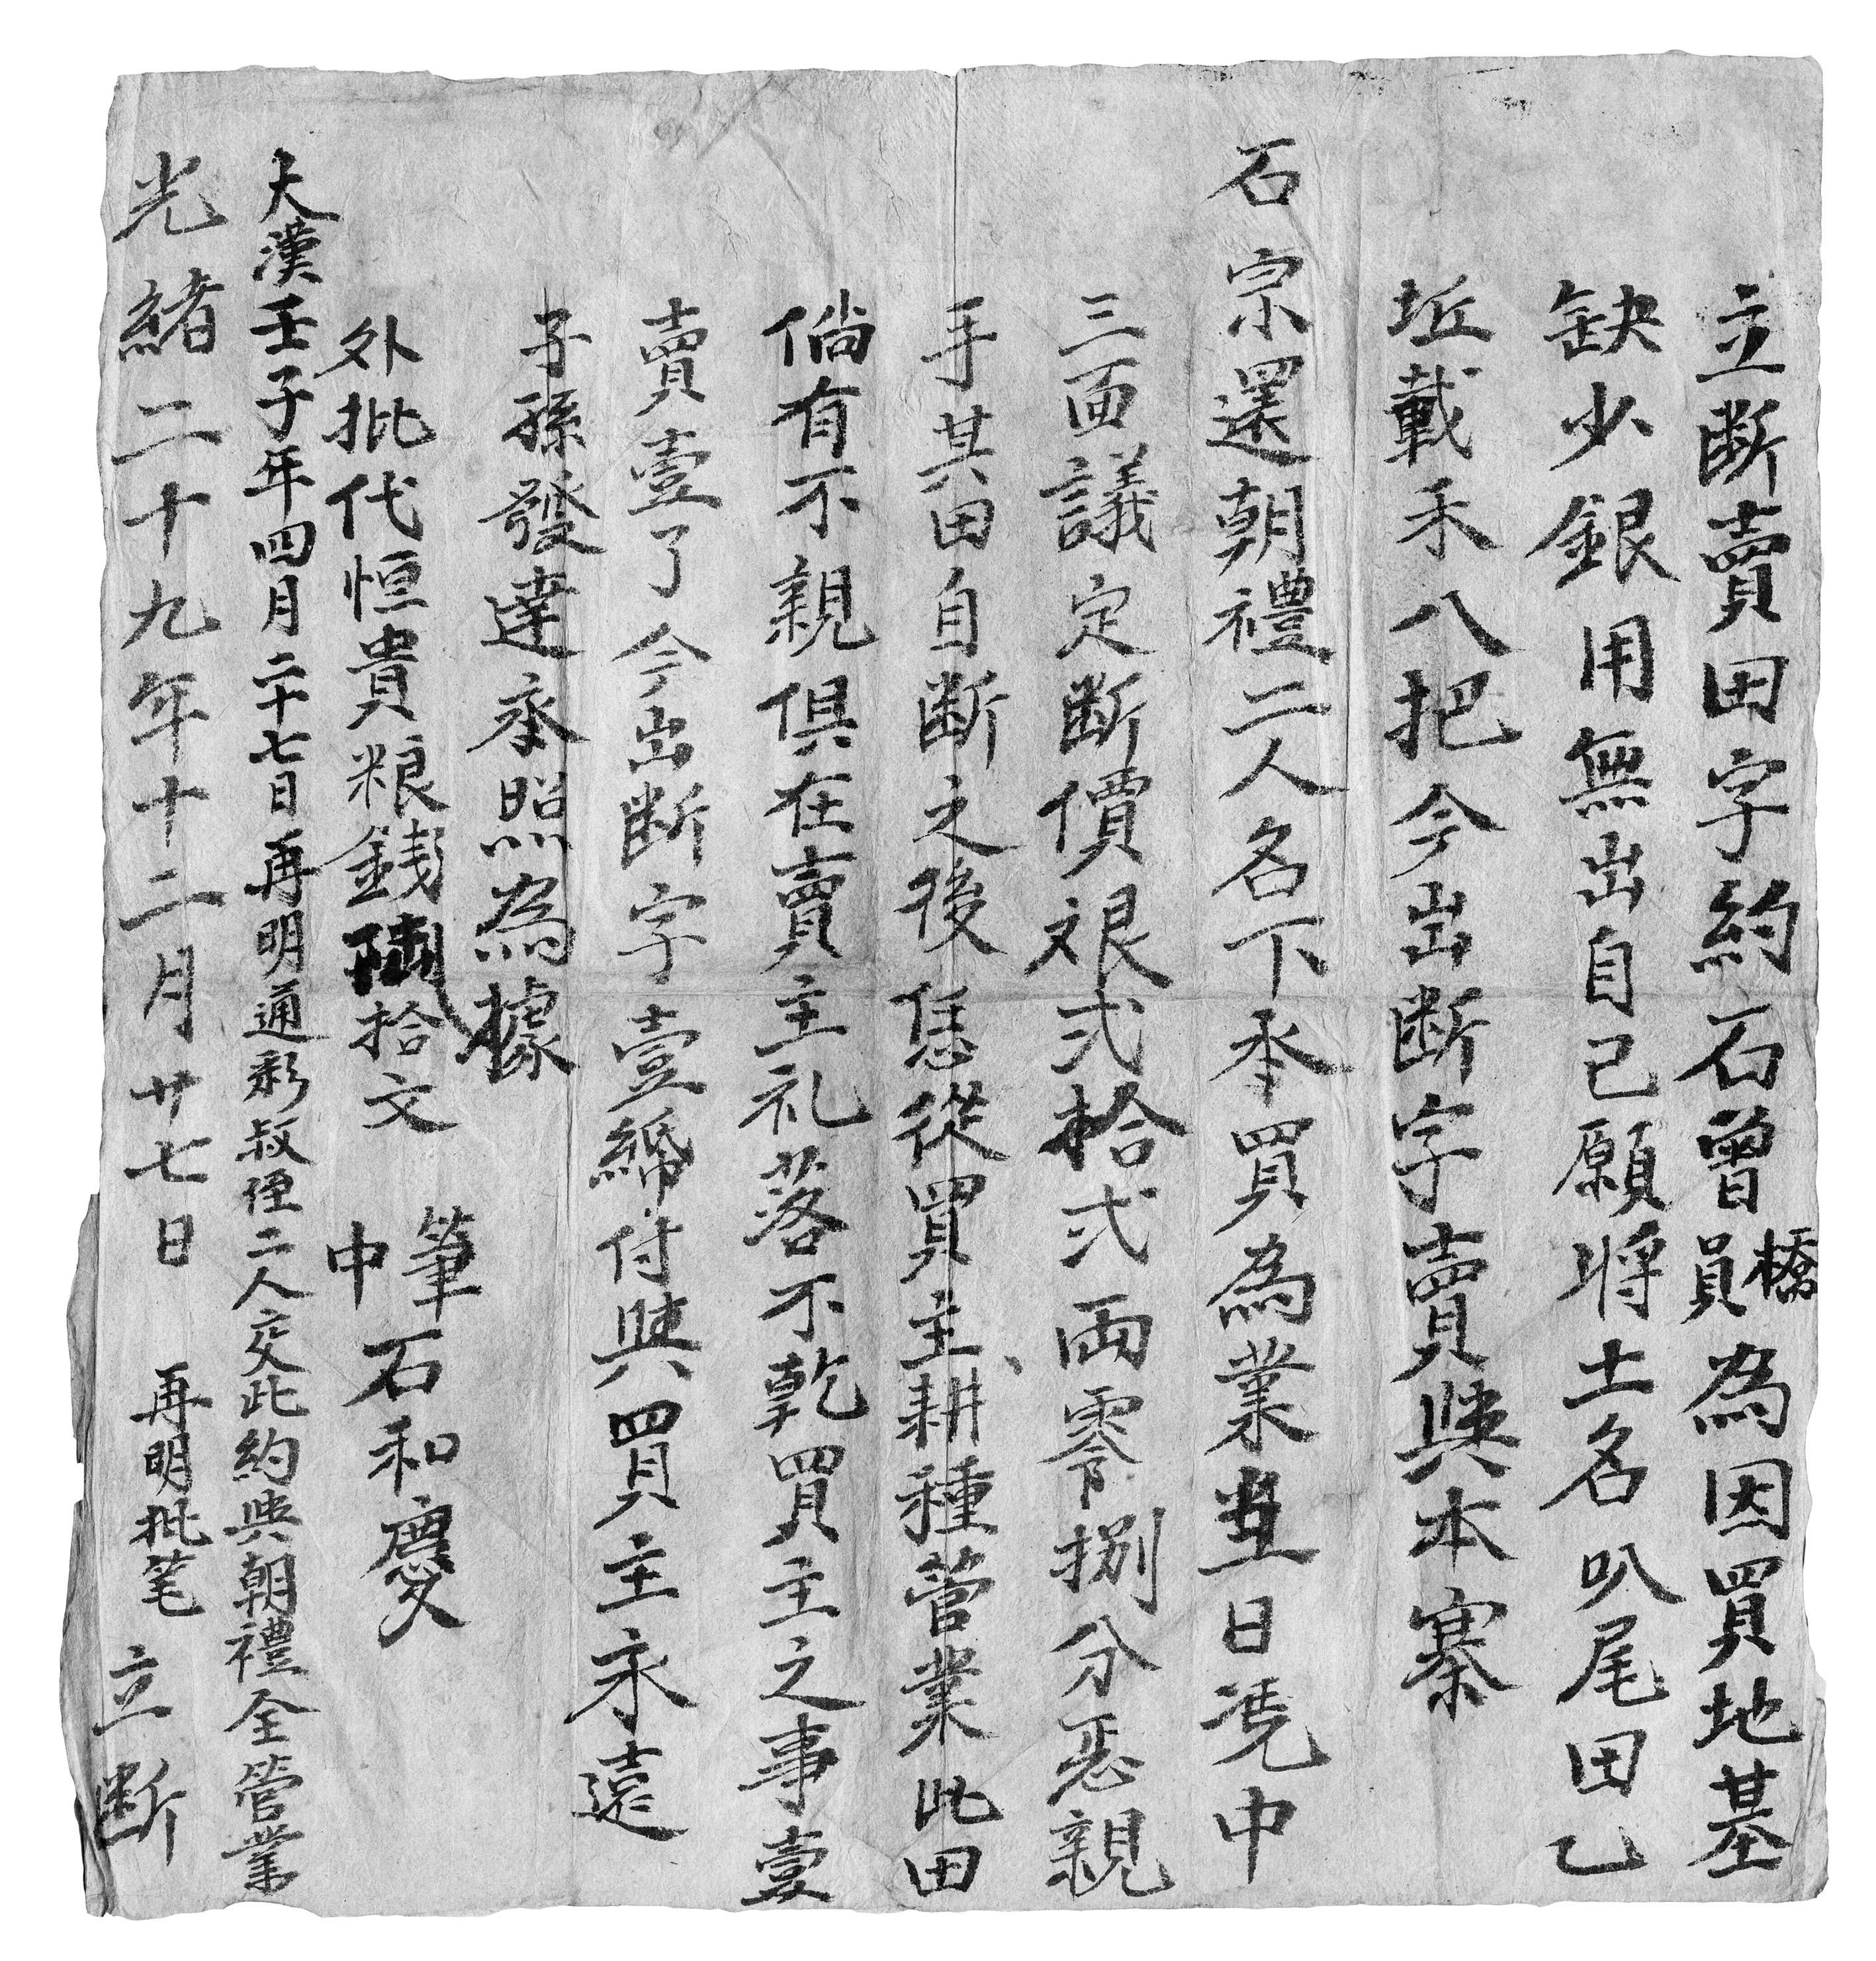 立断賣田字約石曾橋員為因買地基
缺少銀用無出自己願将土名叭尾田乙
坵載禾八把今出断字賣與本寨
石宗還朝禮二人名下承買為業当日凴中
三面議定断價艮弍拾弍両零捌分丟親
手其田自断之後恁從買主耕種管業此田
倘有不親俱在賣主礼落不乾買主之事壹
賣壹了今出断字壹紙付與買主永遠
子孫發達承照為據
外批代恒貴粮銭陸拾文
筆
中石和慶
大漢壬子年四月二十七日再明通彩叔侄二人交此約與朝禮全管業
光緒二十九年十二月廿七日 再明批笔 立断